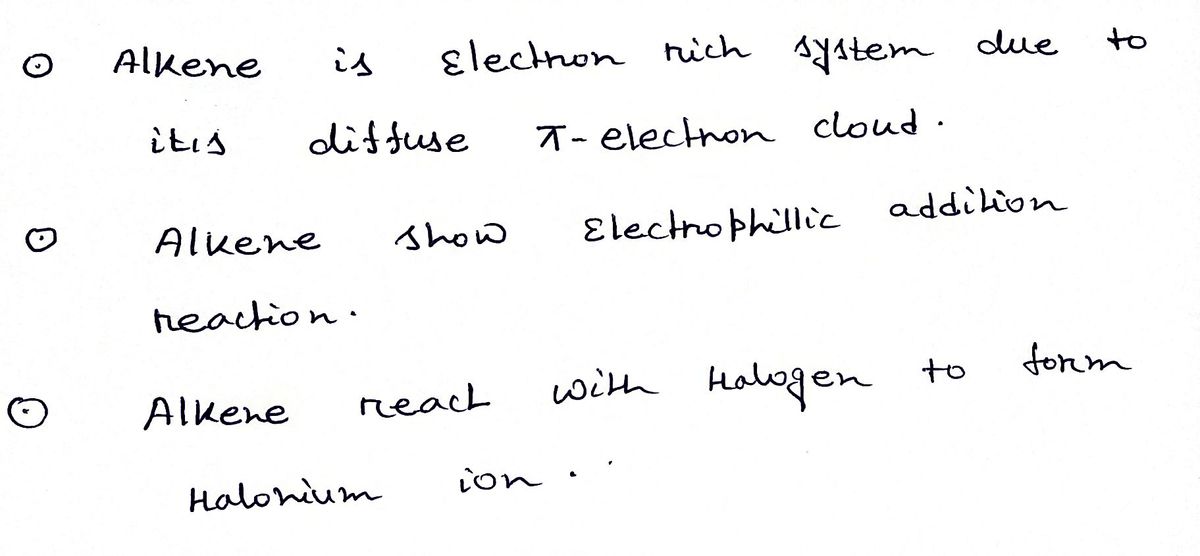 ⊙ Alkene is Electron rich system due to
itis diffuse π-electron cloud.
⊙ Alkene show Electrophillic addition
reaction.
⊙ Alkene react with Halogen to form
Halonium ion.